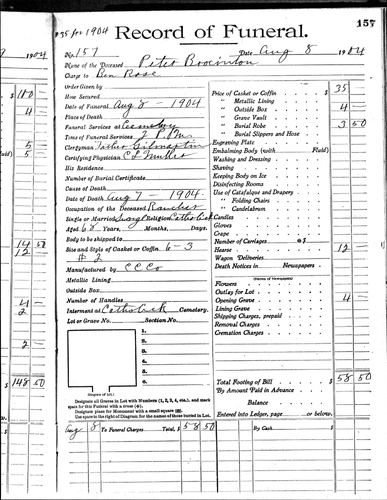 $35 for 1904
157
Record of Funeral.
7 1904
No. 157 Date Aug 8 1904
Name of the Deceased Peter
Charge to Ben Rose
Order Given by
How Secured
Date of Funeral Aug 8 - 1904
Place of Death
Funeral Services at
Time of Funeral Services 2 P.M.
Clergyman Father
Certifying Physician
His Residence
Number of Burial Certificate
Cause of Death
Date of Death Aug 7 - 1904
Occupation of the Deceased Rancher
Single or Married Single Religion Catholic
Aged 68 Years, Months, Days.
Body to be shipped to
Size and Style of Casket or Coffin 6-3
#2
Manufactured by CCCo
Metallic Lining
Outside Box
Number of Handles
Interment at Catholic Cemetery.
Lot or Grave No. Section No.
1.
2.
3.
4.
5.
6.
(Diagram of Lot.)
Designate all Graves in Lot with Numbers (1, 2, 3, 4, etc.), and mark
space for this Funeral with a cross (+).
Designate place for Monument with a small square (□).
Use space to right of Diagram for the names of those buried in Lot.
Price of Casket or Coffin $ 35
" Metallic Lining
" Outside Box 4 —
" Grave Vault
" Burial Robe 3 50
" Burial Slippers and Hose
Engraving Plate
Embalming Body (with Fluid)
Washing and Dressing
Shaving
Keeping Body on Ice
Disinfecting Rooms
Use of Catafalque and Drapery
" Folding Chairs
" Candelabrum
Candles
Gloves
Crape
Number of Carriages @ $
Hearse 12 —
Wagon Deliveries
Death Notices in Newspapers
(Names of Newspapers)
Flowers
Outlay for Lot
Opening Grave 4 —
Lining Grave
Shipping Charges, prepaid
Removal Charges
Cremation Charges
Total Footing of Bill $ 58 50
By Amount Paid in Advance
Balance
Entered into Ledger, page or below.
Aug 8 To Funeral Charges Total, $ 58 50 By Cash $
$ 100
4 —
5 —
Fluid) 5 —
14 50
12
4 —
2
2 —
$ 148 50